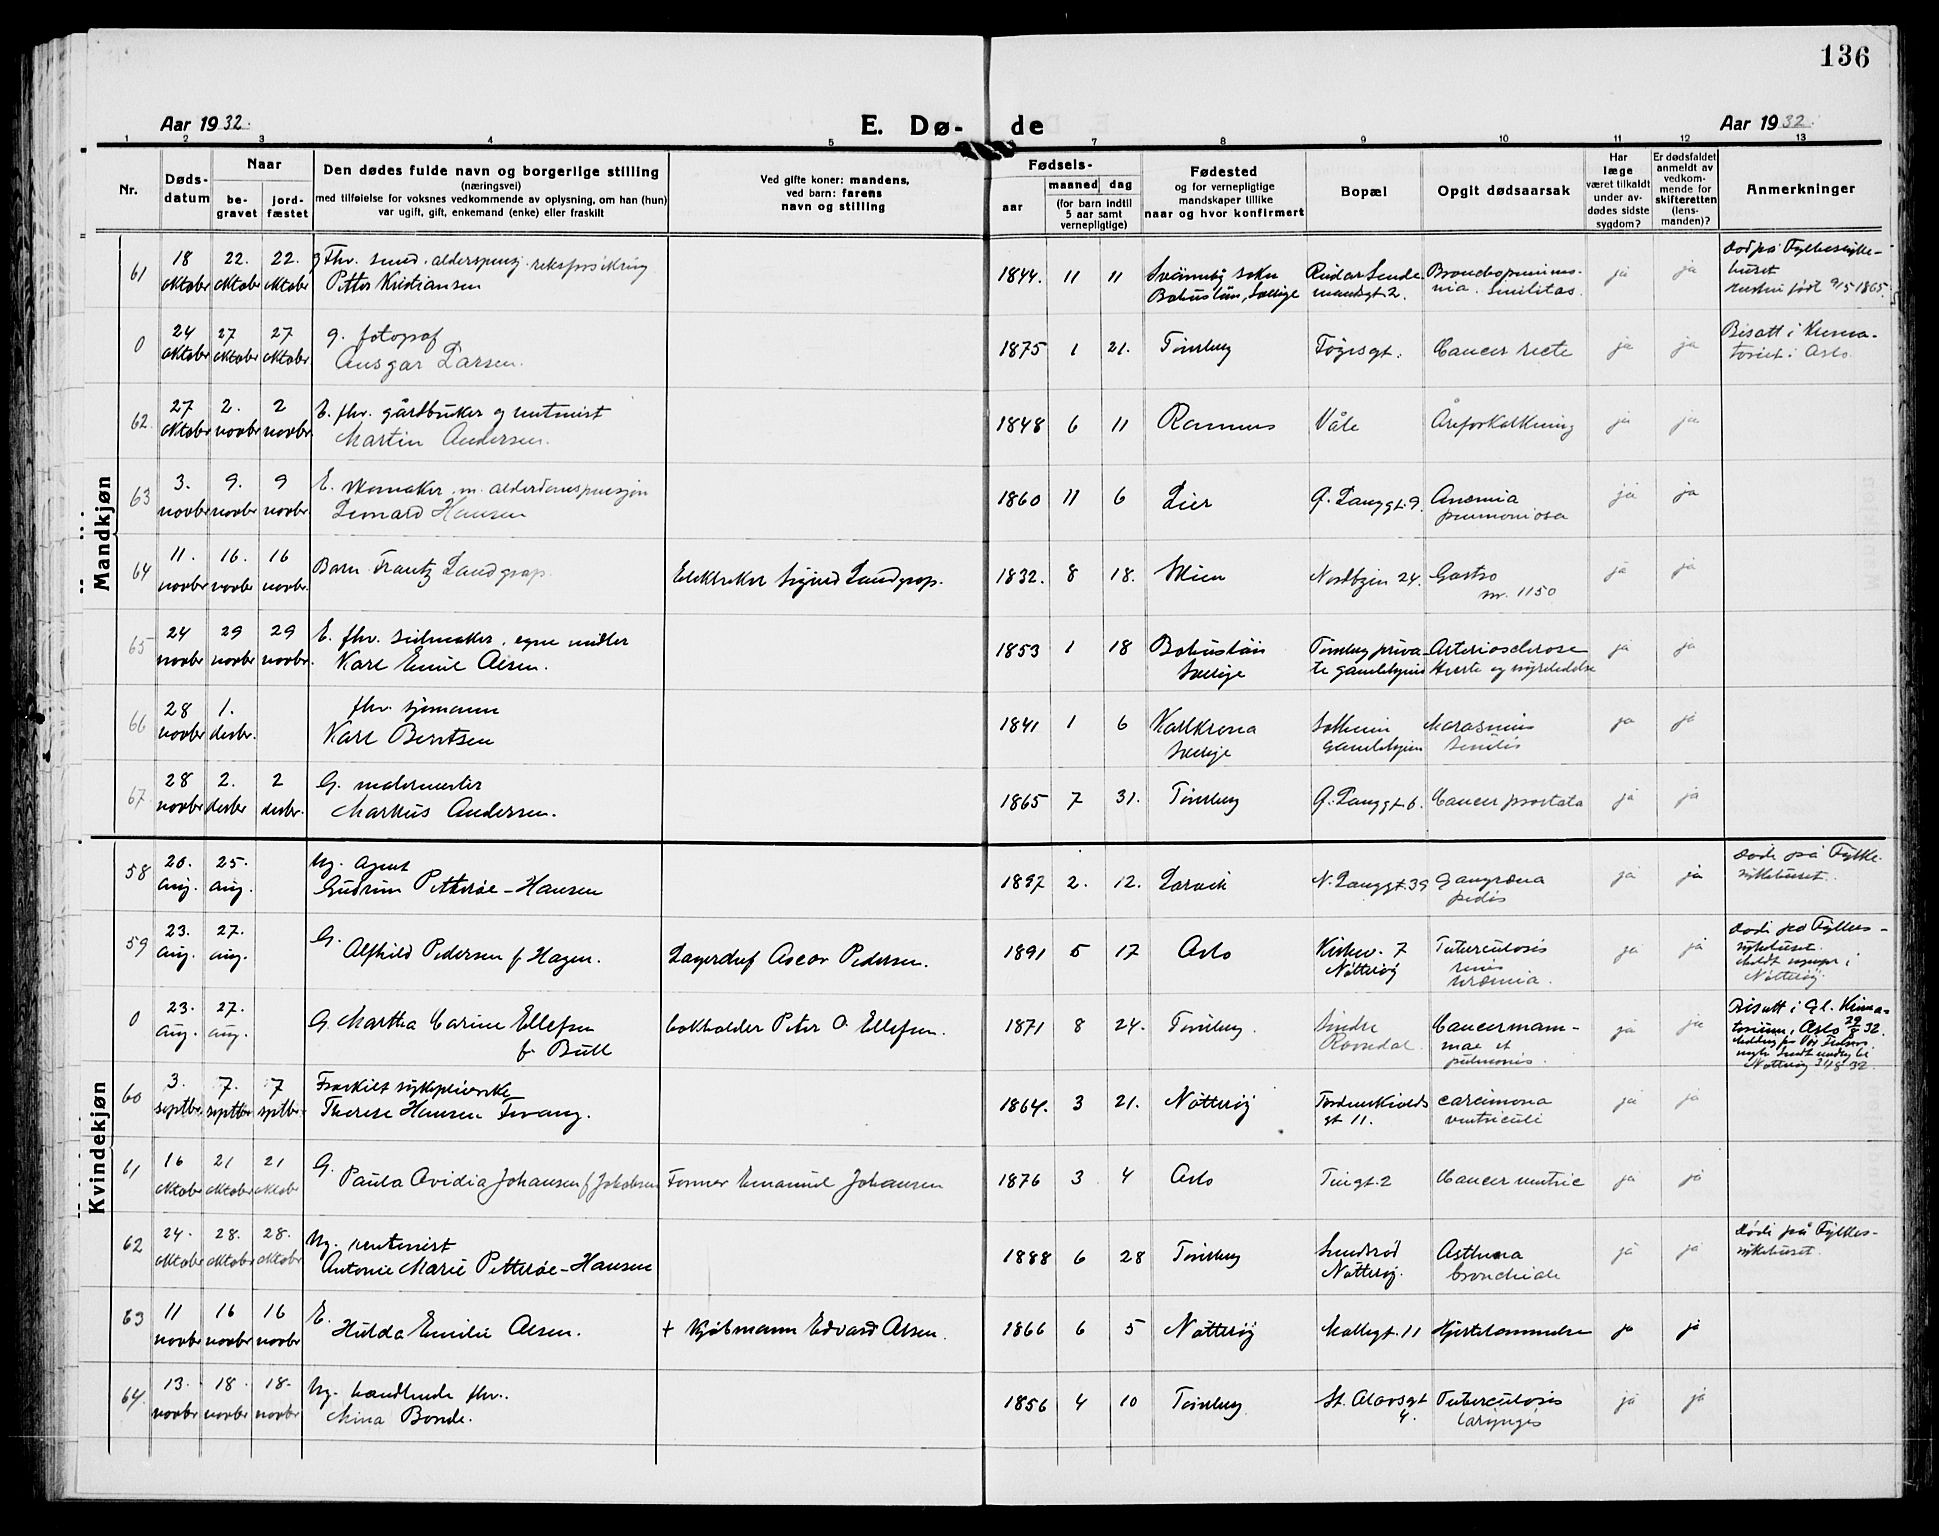 136
Aar 1932.
E. Dø-
de
Aar 1932.
1 2 3 4 5 7 8 9 10 11 12 13
Nr.
Døds-
datum
Naar
be-
gravet
jord-
fæstet
Den dødes fulde navn og borgerlige stilling
(næringsvei)
med tilføielse for voksnes vedkommende av oplysning, om han (hun)
var ugift, gift, enkemand (enke) eller fraskilt
Ved gifte koner: mandens,
ved barn: farens
navn og stilling
Fødsels-
aar
maaned
dag
(for barn indtil
5 aar samt
vernepligtige)
Fødested
og for vernepligtige
mandskaper tillike
naar og hvor konfirmert
Bopæl
Opgit dødsaarsak
Har
læge
været tilkaldt
under av-
dødes sidste
sygdom?
Er dødsfaldet
anmeldt av
vedkom-
mende for
skifteretten
(lens-
manden)?
Anmerkninger
Mandkjøn
61 18 22. 22. g Fhv.
oktober oktober oktober Petter Kristiansen
1844. 11 11
Bohuslän, Sverige
ja ja
født 9/5 1865.
0 24 27 27 g. fotograf
oktober oktober oktober Ansgar Larsen.
1875 1 21. Tønsberg Cancer recte ja ja
i Oslo.
62. 27 2. 2 E. fhv. gårdbruker og rentenist
oktober novbr novbr Martin Andersen.
1848 6 11 Ramnes Våle Åreforkalkning ja ja
63 3. 9. 9 E. skomaker m. alderdomspensjon
novbr novbr novbr. Leonard Hansen
1860 11 6 Lier Q. Langgt. 9. Anæmia
ja ja
64 11. 16. 16 Barn Frantz Landgraf.
novbr novbr novbr. Sigurd Landgraf.
1832. 8 18. Skien Nordbyen 24. Gastro
nr. 1150
ja ja
65 24 29 29 E. fhv. seilmaker, egne midler
novbr novbr novbr. Karl Emil Olsen.
1853 1 18 Bohuslän Tønsberg priva- Arteriosclerose
Sverige te gamlehjem Hjerte og nyrelidelse
ja ja
66 28 1. fhv. sjømann
novbr desbr. Karl Berntsen
1841 1 6 Karlkrona Solheim Marasmus
Sverige gamlehjem senilis
ja ja
67. 28 2. 2 G. malermester
novbr desbr desbr. Markus Andersen.
1865 7 31. Tønsberg Q. Langgt. 6. Cancer prostata ja ja
Kvindekjøn
58 20. 25. Ug. agent
aug. aug. Gudrun Petterøe-Hansen
1897 2. 12. Larvik N. Langgt. 39 Gangræna
pedis
ja ja
døde på Fylke-
sykehuset.
59 23. 27. G.
aug. aug. Alfhild Pedersen f. Hagen. Lagersjef Oscar Pedersen.
1891 5 17 Oslo Kirkev. 7 Tuberculosis
Nøtterøy renis
uræmia.
ja ja
døde på Fylkes-
sykehuset.
Nøtterøy.
0 23. 27. G. Martha Carine Ellefsen bokholder Peter O. Ellefsen.
aug. aug. f. Bull
1871 8 24. Tønsberg. Sindre Cancer mam-
Ravndal mae et
pulmonis.
ja ja
Bisatt i Gl. Krema-
torium, Oslo 29/8 32.
60 3. 7. 7 Fraskilt sykepleierske
septbr. septbr septbr. Therese Hansen Tvang.
1864. 3 21. Nøtterøy Tordenskiolds carcinoma
gt 11. ventriculi
ja ja
61 16 21 21 G.
oktober oktober oktober Paula Ovidia Johansen f. Jakobsen Former Emanuel Johansen
1876 3 4 Oslo Tingt. 2 Cancer ventric ja ja
62 24. 28. 28. Ug. rentenist
oktober oktober oktober Antonie Marie Petterøe-Hansen
1888 6 28 Tønsberg Smidsrød Asthma
Nøtterøy. bronchiale
ja ja
døde på Fylkes-
sykehuset.
63 11 16 16 E.
novbr novbr novbr Hulda Emilie Olsen. + kjøbmann Edvard Olsen.
1866 6 5 Nøtterøy Møllegt. 11 Hjertelammelse ja ja
64. 13. 18. 18. Ug. handlende fhv..
novbr novbr novbr Mina Bonde.
1856 4 10 Tønsberg St. Olavsgt Tuberculosis
4. laryngis
ja ja